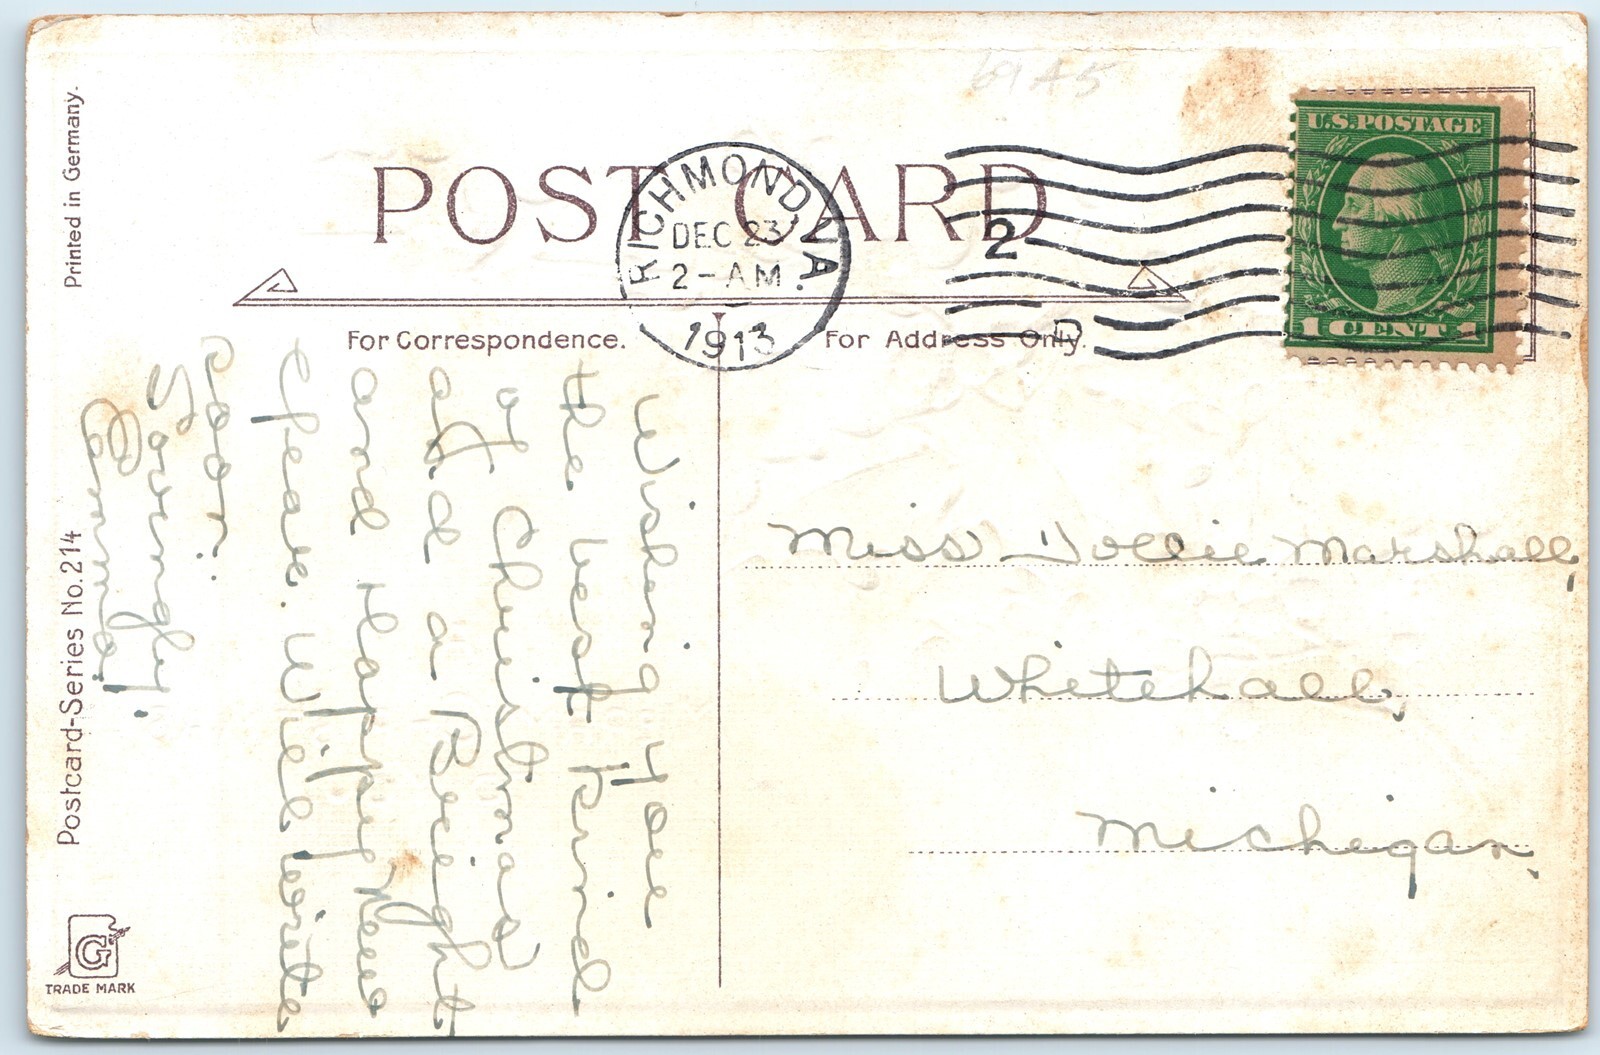 Printed in Germany.
POST CARD
RICHMOND, VA.
DEC 23
2-AM
1913
2
D
U.S. POSTAGE
1 CENT 1
For Correspondence.
For Address Only.
Wishing you
the best kind
of Christmas
and a Bright
and Happy New
year. Will write
soon.
Lovingly
Miss Dollie Marshall,
Whitehall,
Michigan,
Postcard-Series No. 214
G
TRADE MARK